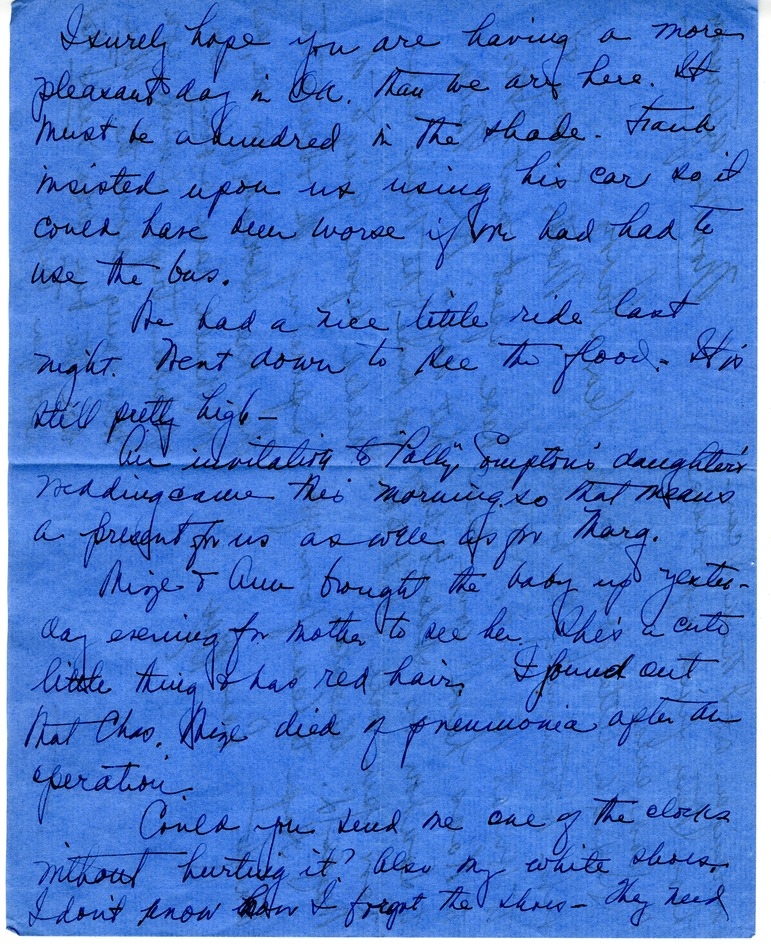 I surely hope you are having a more
pleasant day in D.C. than we are here. It
must be a hundred in the shade. Frank
insisted upon us using his car so it
could have been worse if we had had to
use the bus.
We had a nice little ride last
night. Went down to see the flood. It is
still pretty high —
An invitation to "Polly" Compton's daughter's
wedding came this morning so that means
a present for us as well as for Marg.
Mize & Ann brought the baby up yester-
day evening for mother to see her. She's a cute
little thing & has red hair. I found out
that Chas. Mize died of pneumonia after an
operation.
Could you send me one of the clocks
without hurting it? Also my white shoes.
I don't know how I forgot the shoes — They need